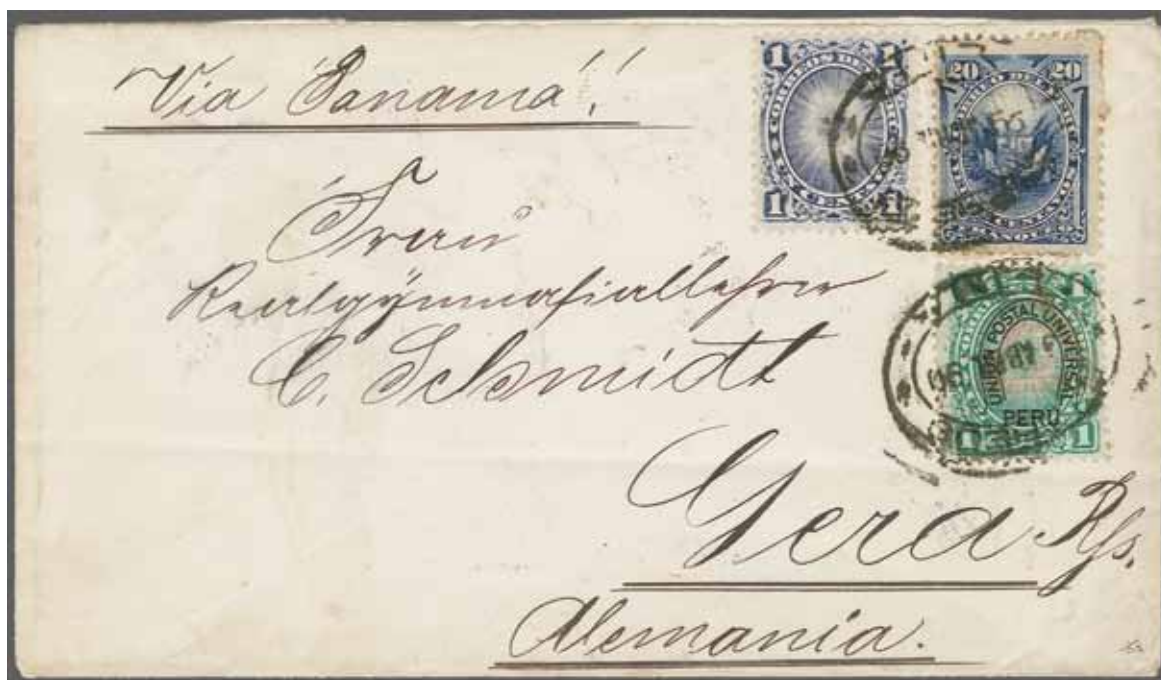 Via Panamá!
Frau
Realgymnasiallehrer
C. Schmidt
Gera Rfs.
Alemania.
1 1
CORREOS DEL
1 1
20 20
UNION POSTAL UNIVERSAL
PERU
1 1